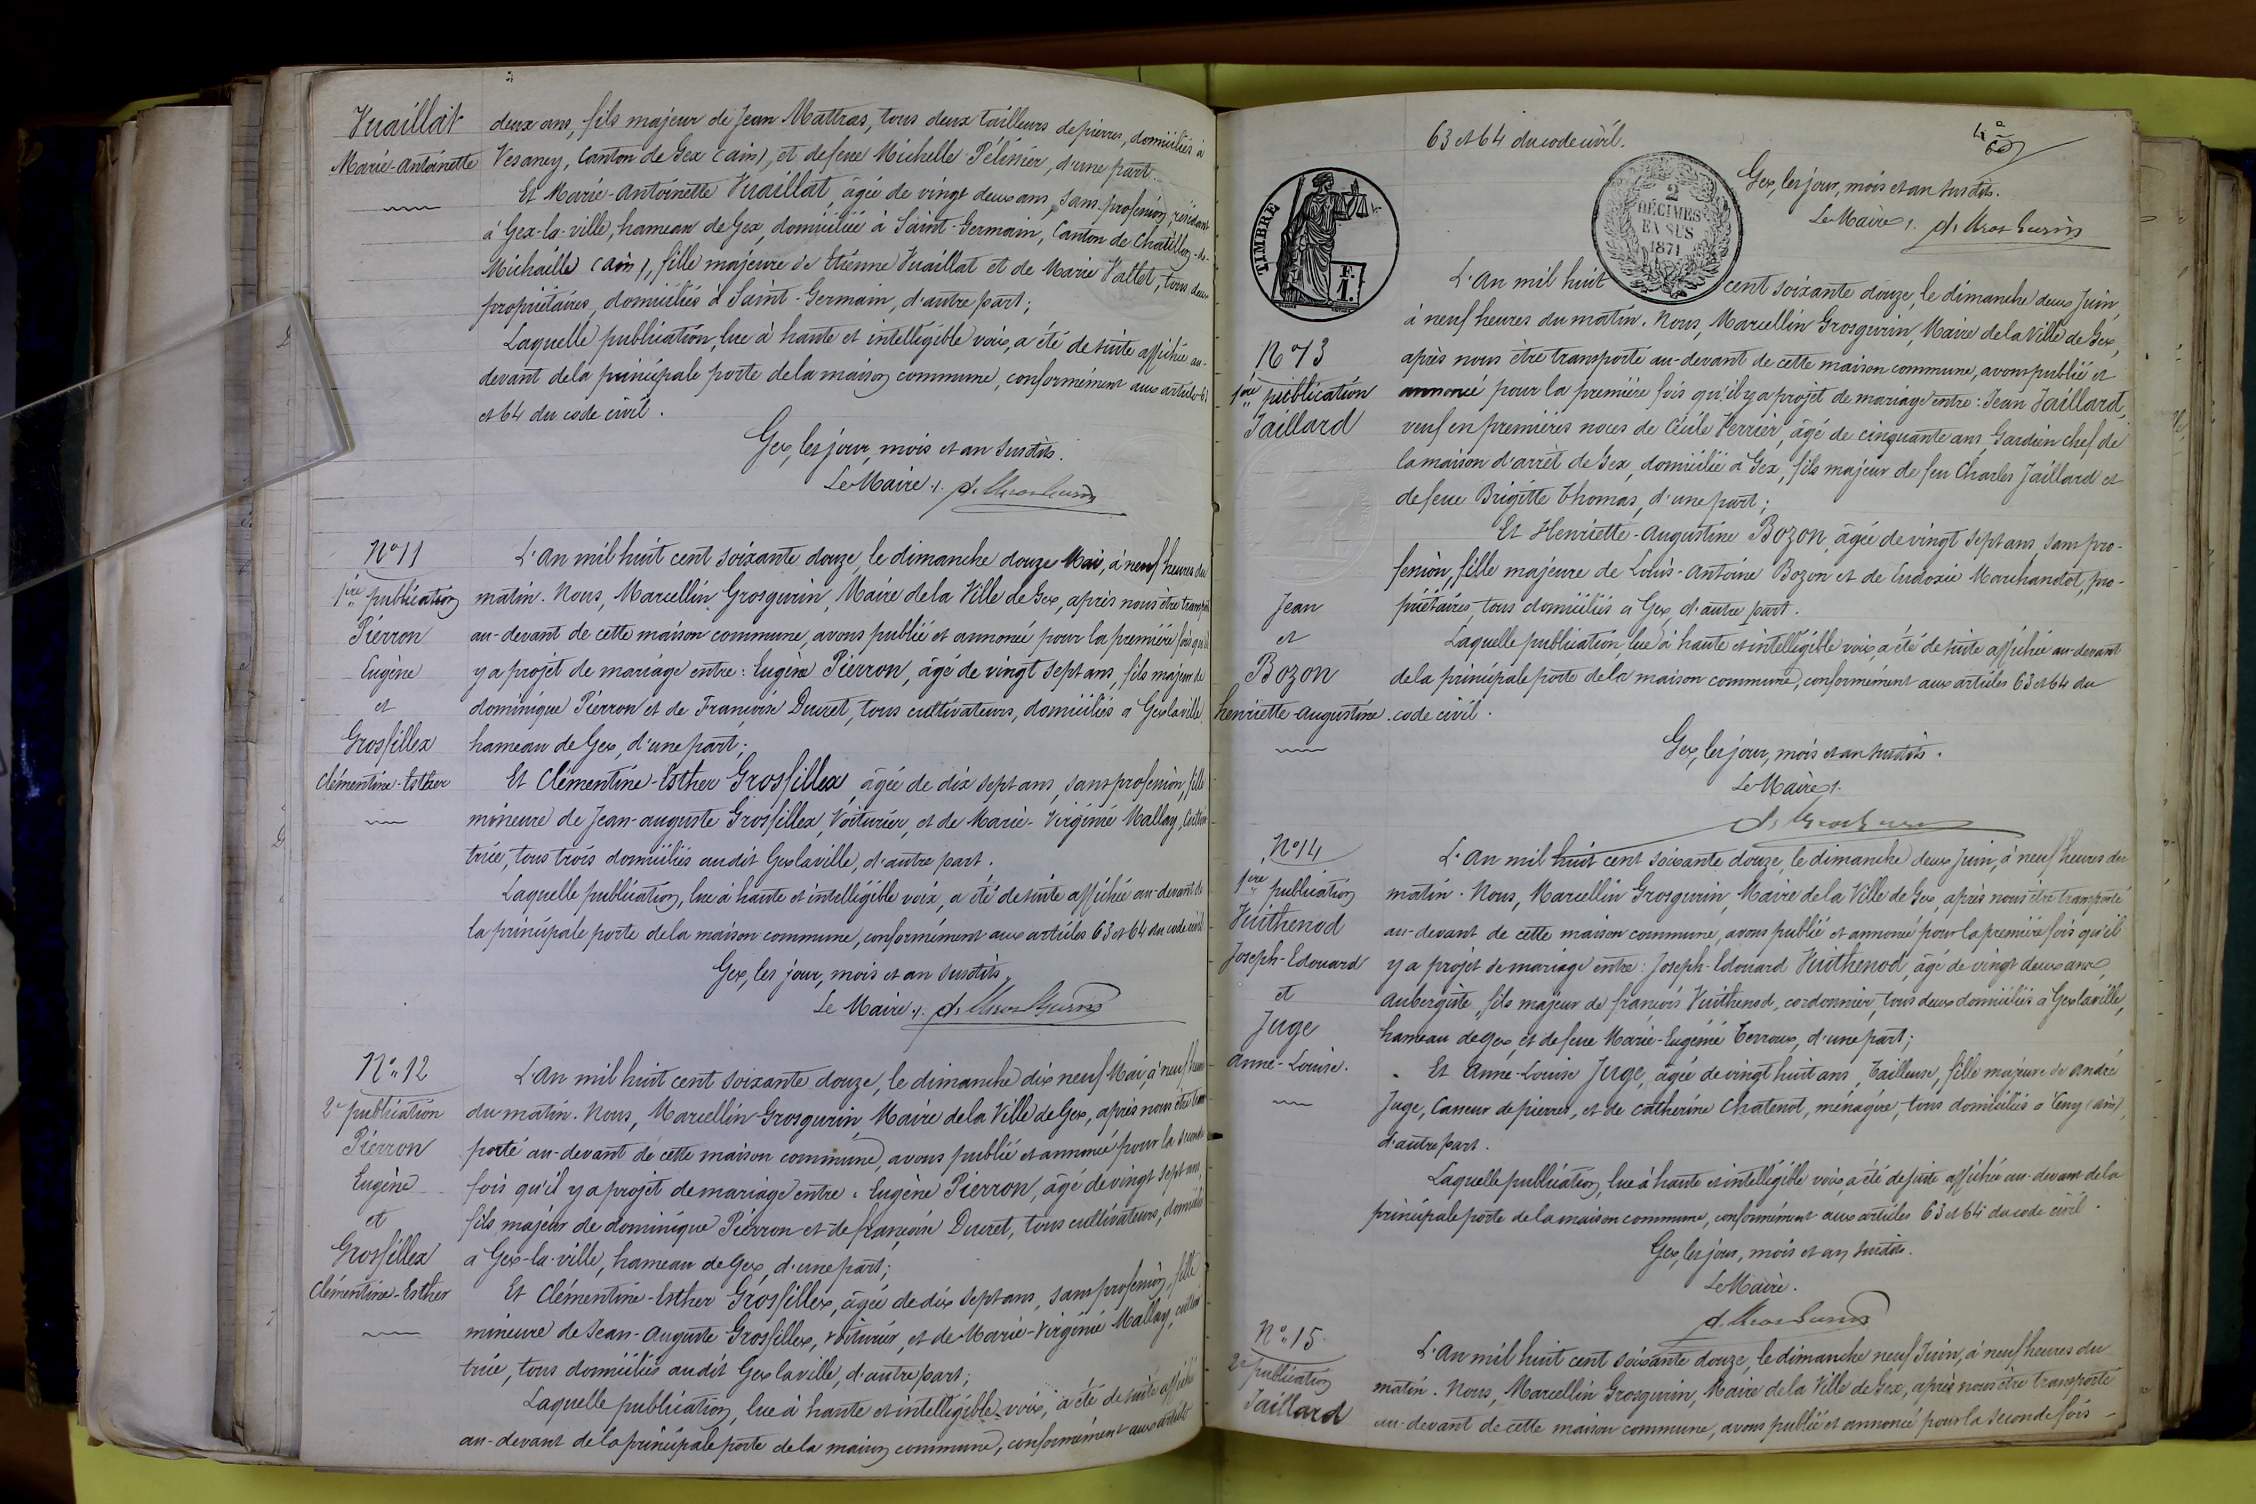 Vuaillat
Marie-Antoinette
deux ans, fils majeur de Jean Mattras, tous deux tailleurs de pierres, domiciliés à
Vesancy, Canton de Gex (ain), et de feue Michelle Pélissier, d'une part.
Et Marie-Antoinette Vuaillat, âgée de vingt deux ans, sans profession, résidant
à Gex-la-ville, hameau de Gex, domiciliée à Saint-Germain, Canton de Châtillon-de-
Michaille (ain), fille majeure de Etienne Vuaillat et de Marie Vallet, tous deux
propriétaires, domiciliés à Saint-Germain, d'autre part;
Laquelle publication, lue à haute et intelligible voix, a été de suite affichée au-
devant de la principale porte de la maison commune, conformément aux articles 63
et 64 du code civil.
Gex, les jour, mois et an susdits.
Le Maire.
N° 11
1ère publication
Pierron
Eugène
et
Grosfillex
Clémentine-Esther
L'An mil huit cent soixante douze, le dimanche douze Mai, à neuf heures du
matin. Nous, Marcellin Grosgurin, Maire de la Ville de Gex, après nous être transporté
au-devant de cette maison commune, avons publié et annoncé pour la première fois qu'il
y a projet de mariage entre: Eugène Pierron, âgé de vingt sept ans, fils majeur de
dominique Pierron et de Françoise Ducret, tous cultivateurs, domiciliés à Gexlaville,
hameau de Gex, d'une part;
Et Clémentine-Esther Grosfillex, âgée de dix sept ans, sans profession, fille
mineure de Jean-auguste Grosfillex, Voiturier, et de Marie-Virginie Mallay, Cultiva
trice, tous trois domiciliés audit Gexlaville, d'autre part.
Laquelle publication, lue à haute et intelligible voix, a été de suite affichée au-devant de
la principale porte de la maison commune, conformément aux articles 63 et 64 du code civil.
Gex, les jour, mois et an susdits.
Le Maire.
N° 12
2e publication
Pierron
Eugène
et
Grosfillex
Clémentine-Esther
L'An mil huit cent soixante douze, le dimanche dix neuf Mai, à neuf heures
du matin. Nous, Marcellin Grosgurin, Maire de la Ville de Gex, après nous être trans
porté au-devant de cette maison commune, avons publié et annoncé pour la seconde
fois qu'il y a projet de mariage entre: Eugène Pierron, âgé de vingt sept ans,
fils majeur de dominique Pierron et de françoise Ducret, tous cultivateurs, domiciliés
à Gex-la-ville, hameau de Gex, d'une part;
Et Clémentine-Esther Grosfillex, âgée de dix sept ans, sans profession, fille
mineure de Jean-Auguste Grosfillex, voiturier, et de Marie-Virginie Mallay, cultiva
trice, tous domiciliés audit Gexlaville, d'autre part;
Laquelle publication, lue à haute et intelligible voix, a été de suite affichée
au-devant de la principale porte de la maison commune, conformément aux articles
63 et 64 du code civil.
Gex, les jour, mois et an susdits.
Le Maire.
TIMBRE
F. I.
2
DÉCIMES
EN SUS
1871
N° 13
1ère publication
Jaillard
Jean
et
Bozon
henriette augustine
L'An mil huit cent soixante douze, le dimanche deux Juin,
à neuf heures du matin. Nous, Marcellin Grosgurin, Maire de la Ville de Gex,
après nous être transporté au-devant de cette maison commune, avons publié et
annoncé pour la première fois qu'il y a projet de mariage entre: Jean Jaillard,
veuf en premières noces de Cécile Verrier, âgé de cinquante ans, Gardien chef de
la maison d'arrêt de Gex, domicilié à Gex, fils majeur de feu Charles Jaillard et
de feue Brigitte Thomas, d'une part;
Et Henriette-Augustine Bozon, âgée de vingt sept ans, sans pro-
fession, fille majeure de Louis-Antoine Bozon et de Eudoxie Marchandot, pro-
priétaires, tous domiciliés à Gex, d'autre part.
Laquelle publication, lue à haute et intelligible voix, a été de suite affichée au-devant
de la principale porte de la maison commune, conformément aux articles 63 et 64 du
code civil.
Gex, les jour, mois et an susdits.
Le Maire.
N° 14
1ère publication
Vuithenod
Joseph-Edouard
et
Juge
anne-Louise.
L'An mil huit cent soixante douze, le dimanche deux Juin, à neuf heures du
matin. Nous, Marcellin Grosgurin, Maire de la Ville de Gex, après nous être transporté
au-devant de cette maison commune, avons publié et annoncé pour la première fois qu'il
y a projet de mariage entre: Joseph-Edouard Vuithenod, âgé de vingt deux ans,
aubergiste, fils majeur de françois Vuithenod, cordonnier, tous deux domiciliés à Gexlaville,
hameau de Gex, et de feue Marie-Eugénie Terroux, d'une part;
Et Anne-Louise Juge, âgée de vingt huit ans, Tailleuse, fille majeure de andré
Juge, Casseur de pierres, et de catherine Chatenot, ménagère, tous domiciliés à Ceny (ain),
d'autre part.
Laquelle publication, lue à haute et intelligible voix, a été de suite affichée au-devant de la
principale porte de la maison commune, conformément aux articles 63 et 64 du code civil.
Gex, les jour, mois et an susdits.
Le Maire.
N° 15
2e publication
Jaillard
L'An mil huit cent soixante douze, le dimanche neuf Juin, à neuf heures du
matin. Nous, Marcellin Grosgurin, Maire de la Ville de Gex, après nous être transporté
au-devant de cette maison commune, avons publié et annoncé pour la seconde fois